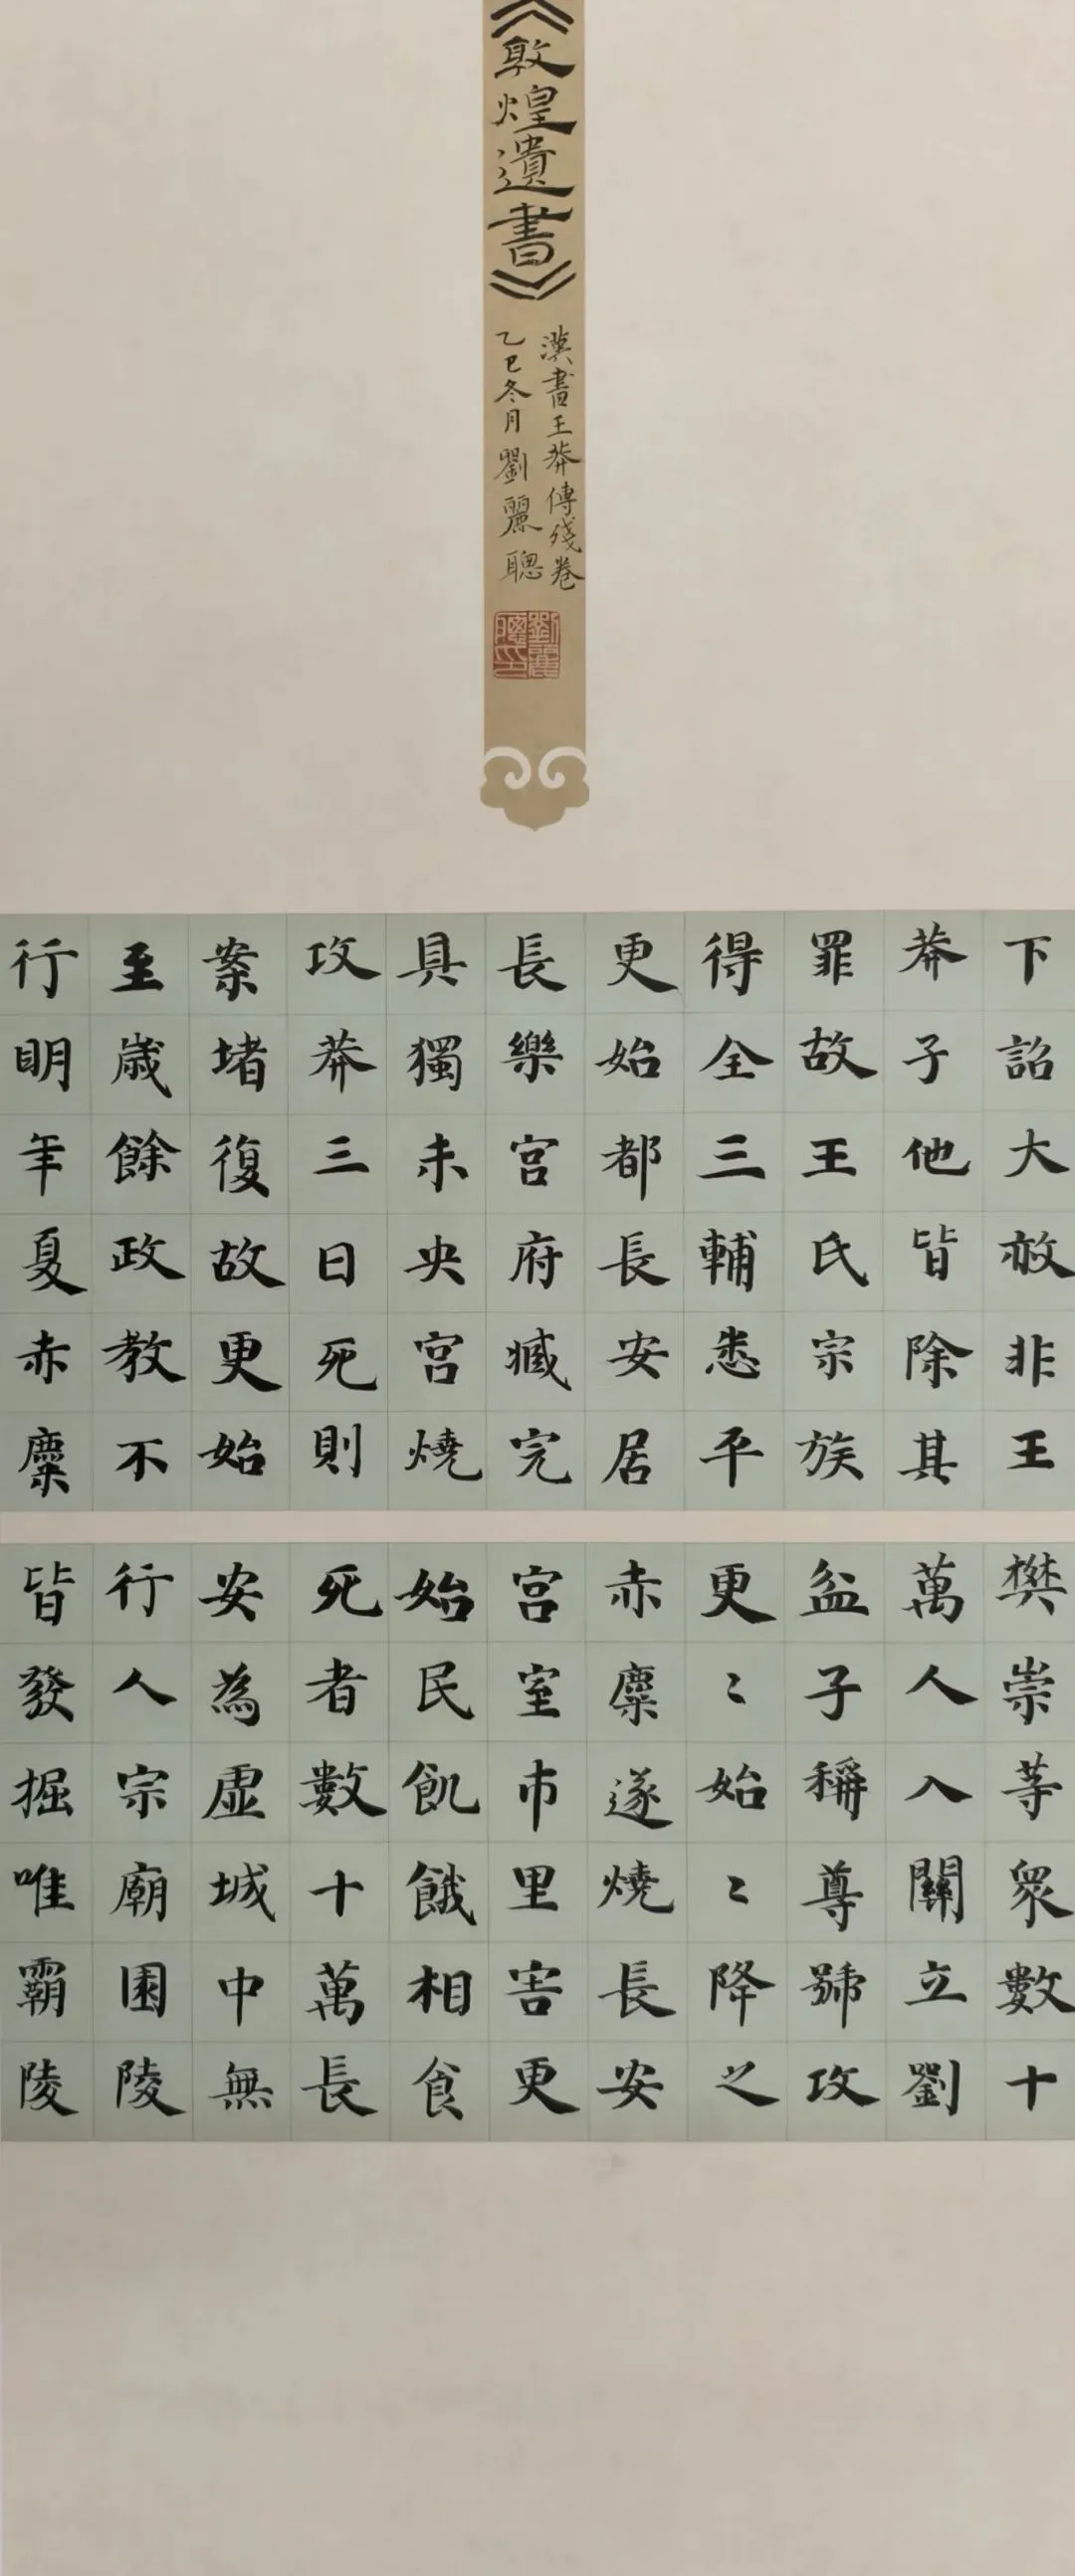 《敦煌遺書》
漢書王莽傳殘卷
乙巳冬月劉麗聰
劉麗聰印
下詔大赦非王
莽子他皆除其
罪故王氏宗族
得全三輔悉平
更始都長安居
長樂宮府臧完
具獨未央宮燒
攻莽三日死則
案堵復故更始
至歲餘政教不
行明年夏赤糜
樊崇等眾數十
萬人入關立劉
盆子稱尊號攻
更〻始〻降之
赤糜遂燒長安
宮室市里害更
始民飢餓相食
死者數十萬長
安為虛城中無
行人宗廟園陵
皆發掘唯霸陵